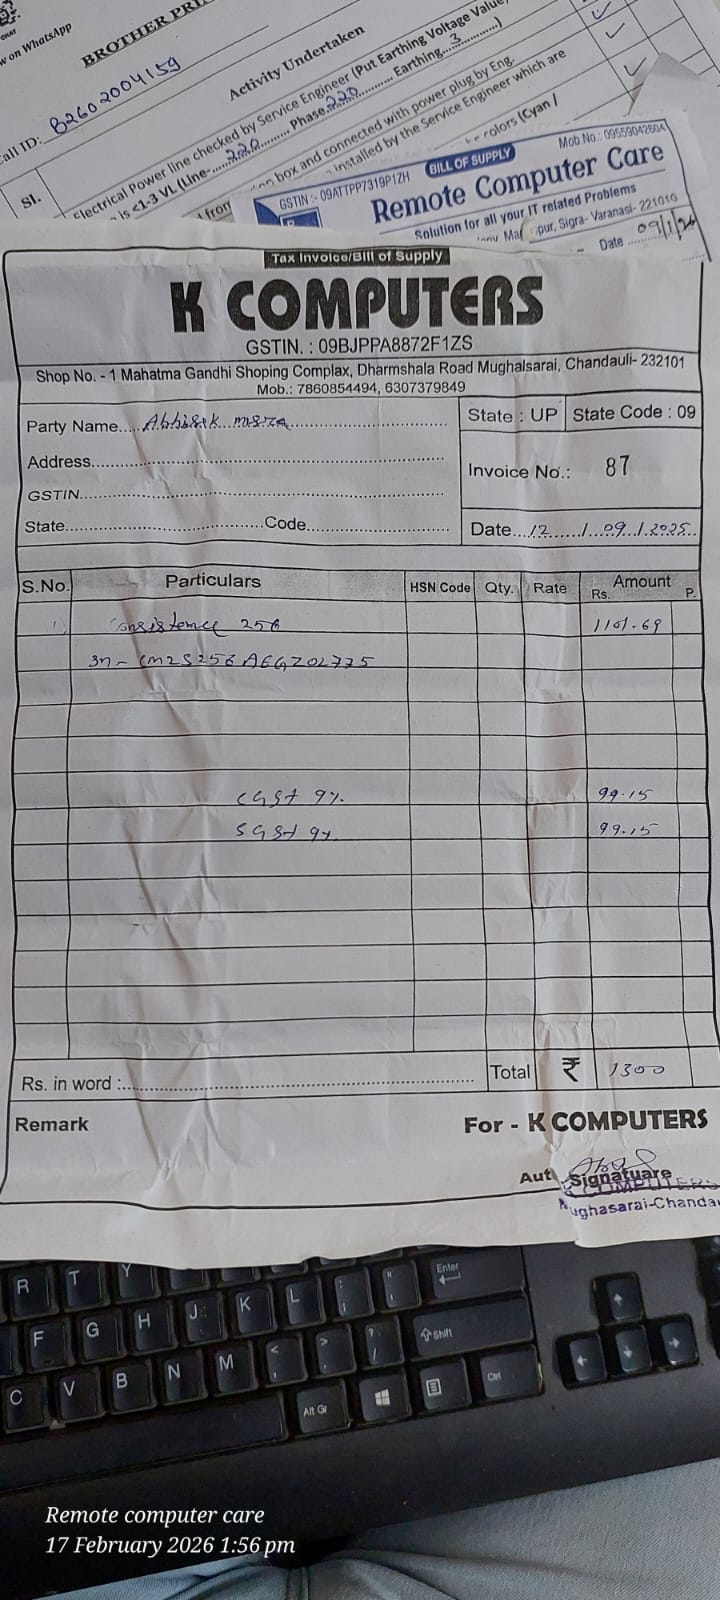 w on WhatsApp
BROTHER PRI
Call ID: B2602004159
Activity Undertaken
Sl.
Electrical Power line checked by Service Engineer (Put Earthing Voltage Value,
is <1-3 VL (Line-....220....... Phase.220.......... Earthing...3..........)
on box and connected with power plug by Eng.
installed by the Service Engineer which are
colors (Cyan /
GSTIN :- 09ATTPP7319P1ZH BILL OF SUPPLY Mob No.: 09559042604
Remote Computer Care
Solution for all your IT related Problems
pur, Sigra- Varanasi- 221010
Date 09/1/26
Tax Invoice/Bill of Supply
K COMPUTERS
GSTIN. : 09BJPPA8872F1ZS
Shop No. - 1 Mahatma Gandhi Shoping Complax, Dharmshala Road Mughalsarai, Chandauli- 232101
Mob.: 7860854494, 6307379849
Party Name.... Abhisek misra
State : UP State Code : 09
Address
Invoice No.: 87
GSTIN
State Code
Date...12 / 09 / 2025
S.No. Particulars HSN Code Qty. Rate Amount Rs. P.
1) Consistence 256 1101.69
CGST 9% 99.15
SGST 9% 99.15
Rs. in word : Total ₹ 1300
Remark For - K COMPUTERS
Signatuare
COMPUTERS
Mughasarai-Chanda
R T Y Enter
F G H J K L
Shift
C V B N M
Alt Gr Ctrl
Remote computer care
17 February 2026 1:56 pm